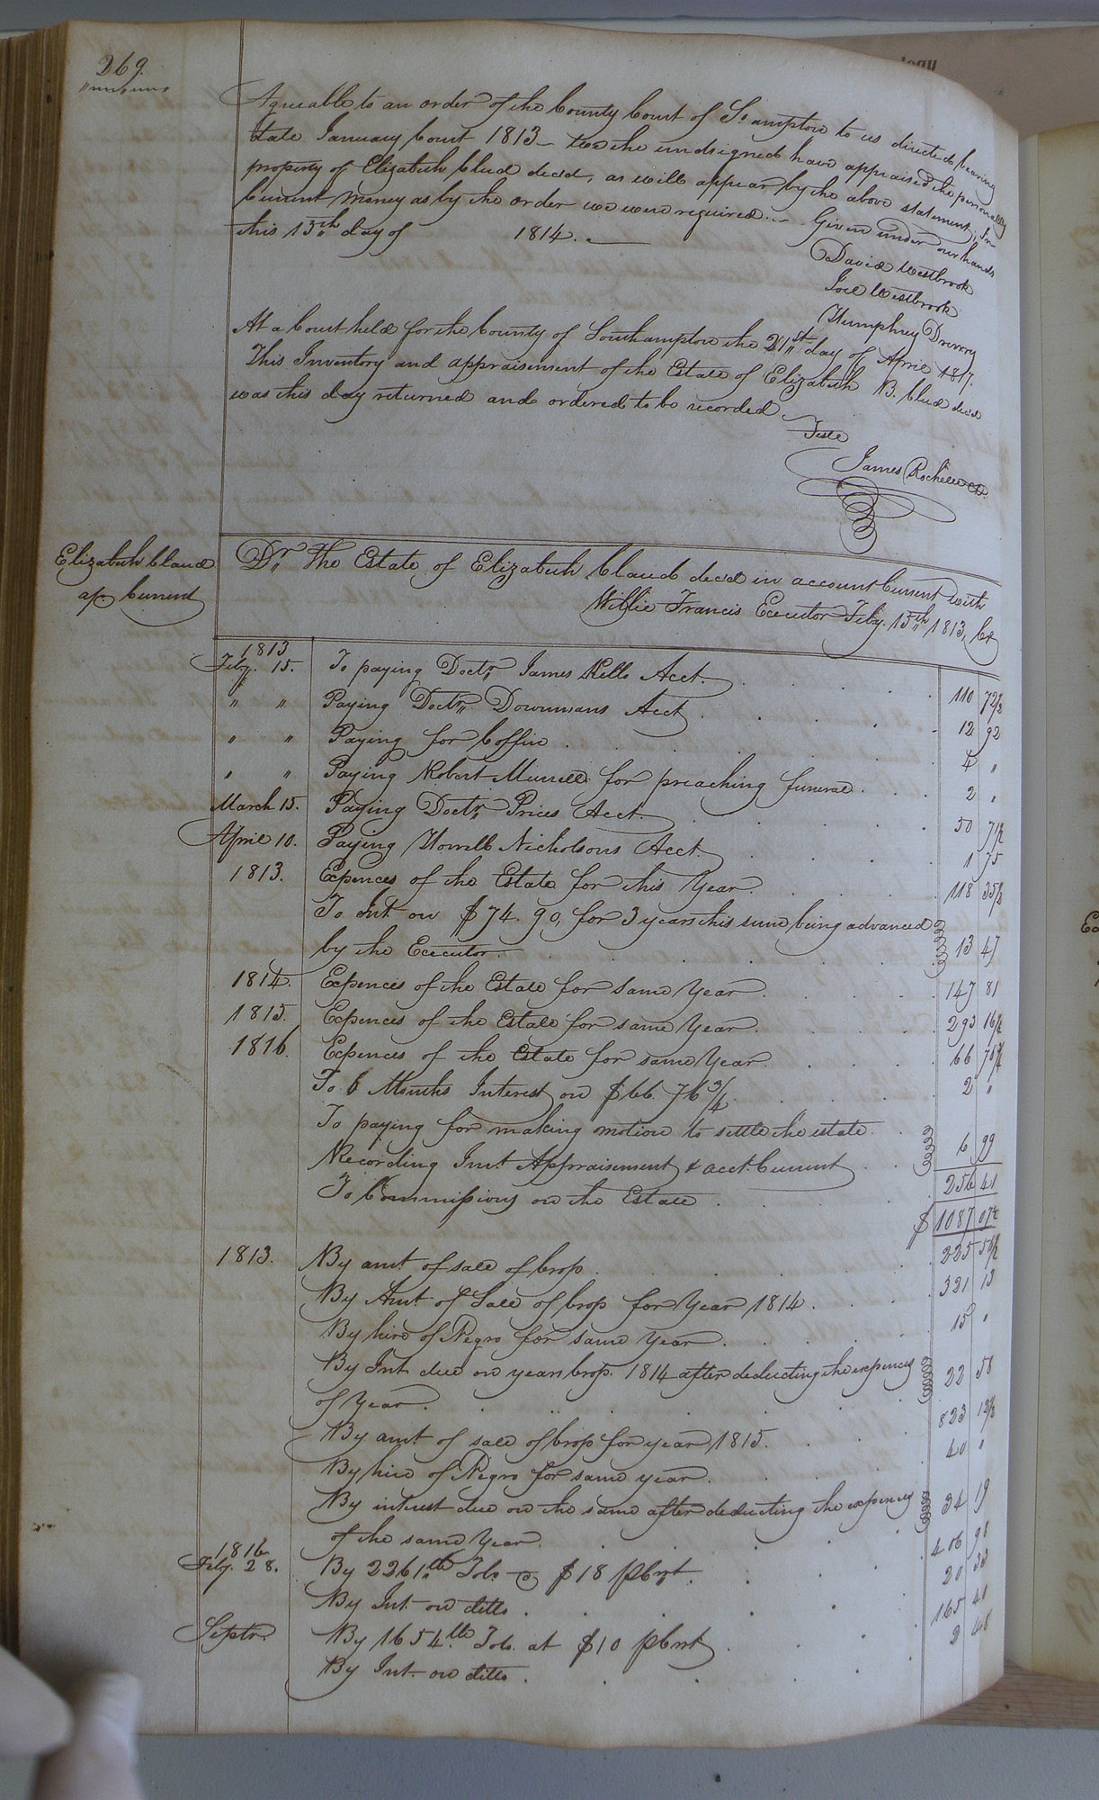 269.
Agreeable to an order of the County Court of So.ampton to us directed bearing
date January Court 1813 - We the undsigned have appraised the personal
property of Elizabeth Claud decd, as will appear by the above statement, In
Current Money as by the order we were required. - Given under our hands
this 15th day of 1814. -
David Westbrook
Joel Westbrook
Humphrey Drewry
At a Court held for the County of Southampton the 21st day of April 1817.
This Inventory and appraisement of the Estate of Elizabeth B. Claud decd
was this day returned and ordered to be recorded -
Teste
James Rochelle
Elizabeth Claud
ap. Current
Dr. The Estate of Elizabeth Claud decd in account Current with
Willie Francis Executor Feby. 15th 1813, Cr
1813
Feby. 15. To paying Doctr. James Kello Acct. 110 72½
" " Paying Doctr. Downmans Acct 12 92
" " Paying for Coffin 4 "
" " Paying Robert Murrell for preaching funeral 2 "
March 15. Paying Doctr. Prices Acct. 50 71½
April 10. Paying Howell Nicholsons Acct. 1 75
1813. Expences of the Estate for this Year. 118 35½
To Int on $74.90, for 3 years this sum being advanced
by the Executor. 13 47
1814. Expences of the Estate for same Year. 147 81
1815. Expences of the Estate for same Year. 293 16½
1816. Expences of the Estate for same Year. 66 76¾
To 6 Months Interest on $66.76 3/4 2 "
To paying for making motion to settle the estate
Recording Invt Appraisement & acct. Current 6 99
To Commissions on the Estate 256 41
$ 1087 07½
1813. By amt of sale of Crop. 225 50½
By Amt of Sale of Crop for Year 1814. 321 13
By hire of Negro for same Year. 15 "
By Int. due on years Crop. 1814 after deducting the expences
of Year. 22 58
By amt of sale of Crop for year 1815. 823 12½
By hire of Negro for same year. 40 "
By interest due on the same after deducting the expences
of the same Year. 34 19
1816
Feby. 28. By 2261 lb Tob. @ $18 pCwt. 406 98
By Int. on ditto. 20 33
Septr. By 1654 lb Tob. at $10 pCwt 165 40
By Int. on ditto. 2 48